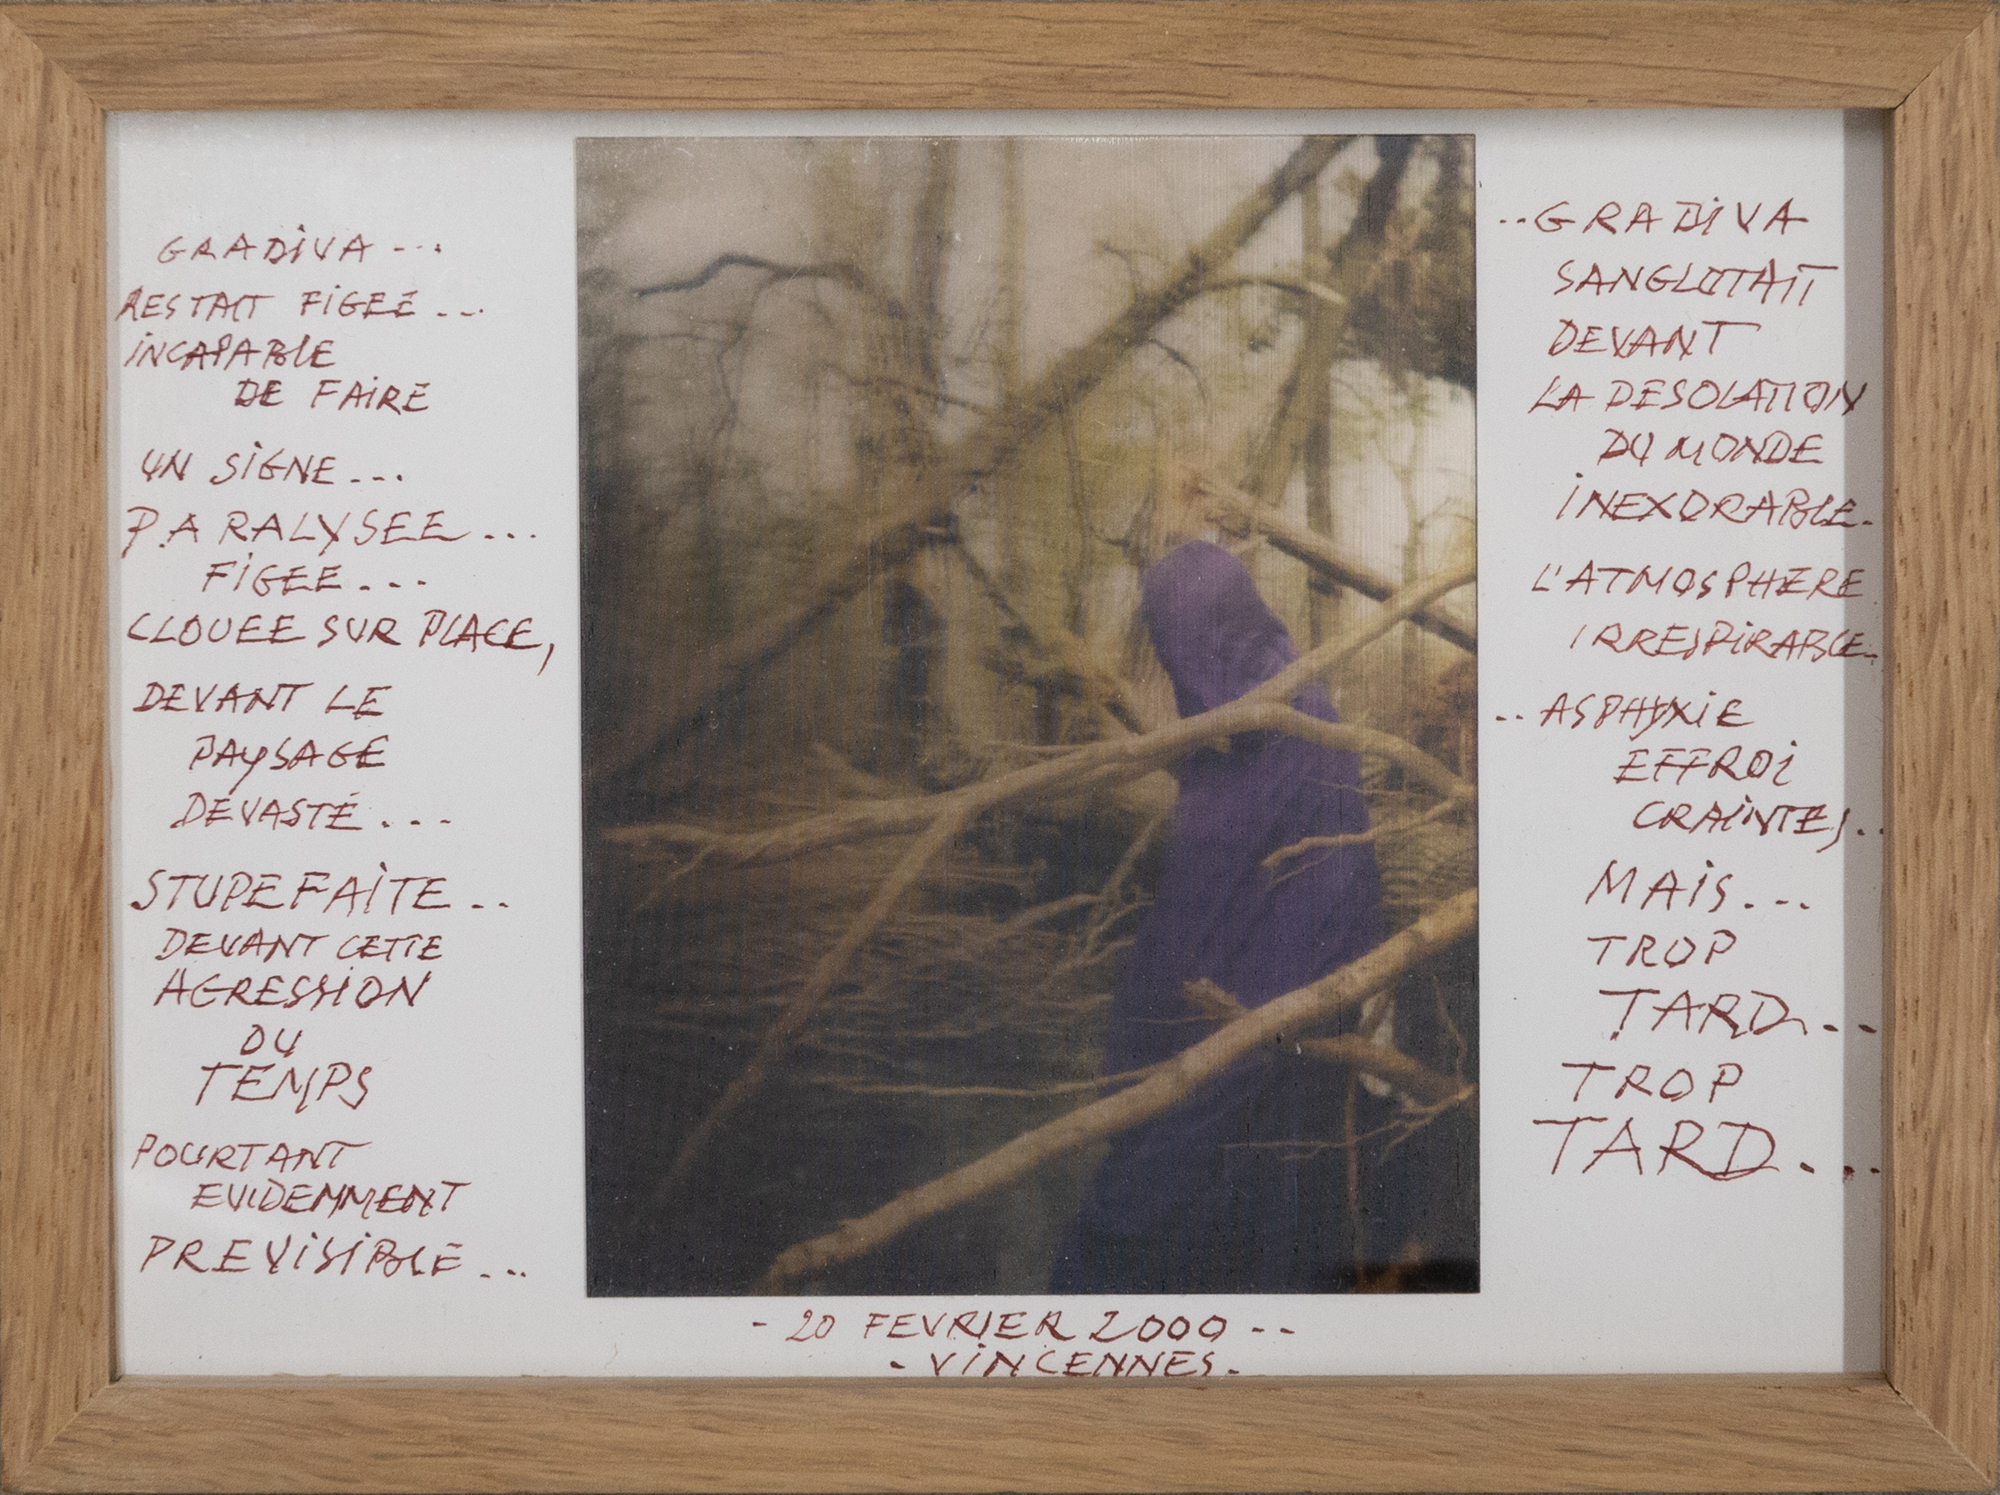 GRADIVA...
RESTAIT FIGEE...
INCAPABLE
DE FAIRE
UN SIGNE...
PARALYSEE...
FIGEE...
CLOUEE SUR PLACE,
DEVANT LE
PAYSAGE
DEVASTÉ...
STUPEFAITE..
DEVANT CETTE
AGRESSION
DU
TEMPS
POURTANT
EVIDEMMENT
PREVISIBLE...
..GRADIVA
SANGLOTAIT
DEVANT
LA DESOLATION
DU MONDE
INEXORABLE.
L'ATMOSPHERE
IRRESPIRABLE.
..ASPHYXIE
EFFROI
CRAINTES..
MAIS...
TROP
TARD...
TROP
TARD...
- 20 FEVRIER 2000 --
- VINCENNES.